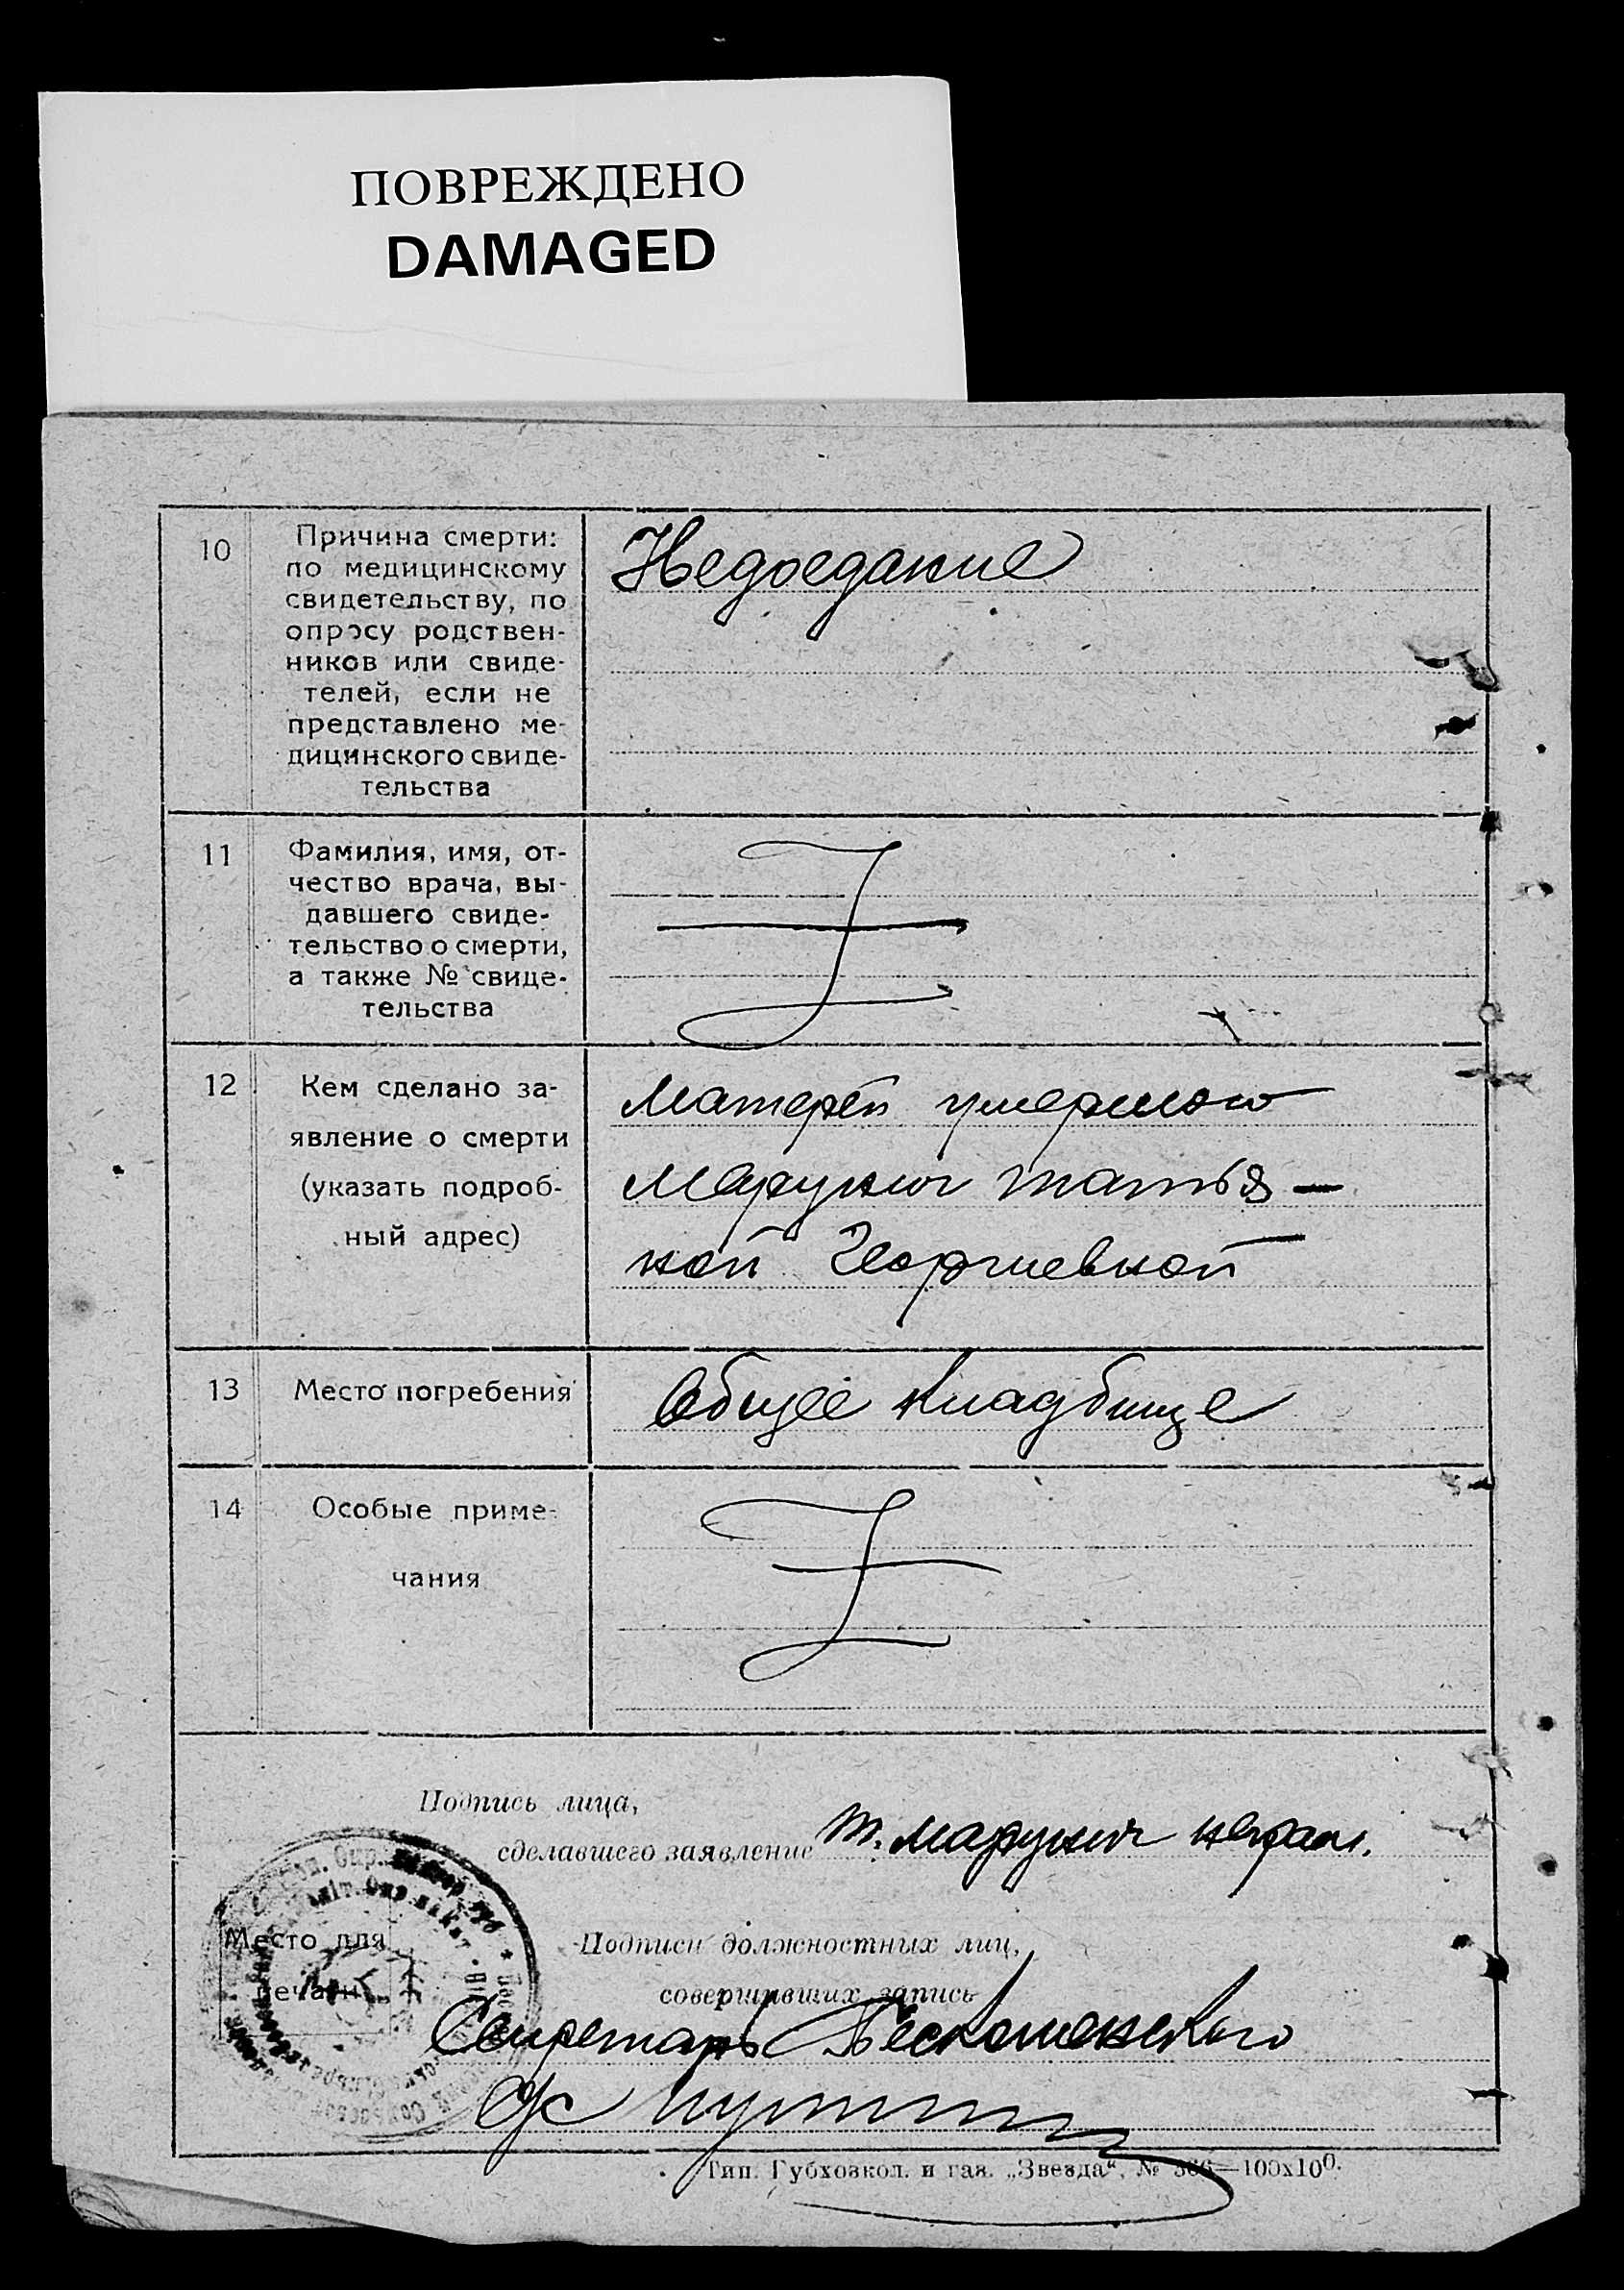 ПОВРЕЖДЕНО
DAMAGED
10
Причина смерти:
по медицинскому
свидетельству, по
опросу родствен-
ников или свиде-
телей, если не
представлено ме-
дицинского свиде-
тельства
Недоедание
11
Фамилия, имя, от-
чество врача, вы-
давшего свиде-
тельство о смерти,
а также № свиде-
тельства
12
Кем сделано за-
явление о смерти
(указать подроб-
ный адрес)
Матерей умершаго
Марукич Татья-
ной Георгиевной
13
Место погребения
Общее кладбище
14
Особые приме-
чания
Подпись лица,
сделавшего заявление Т. Марукич
Место для
печати
Подписи должностных лиц,
совершивших запись
Секретарь
Тип. Губхозкол. и газ. „Звезда“, № 366—100х100.